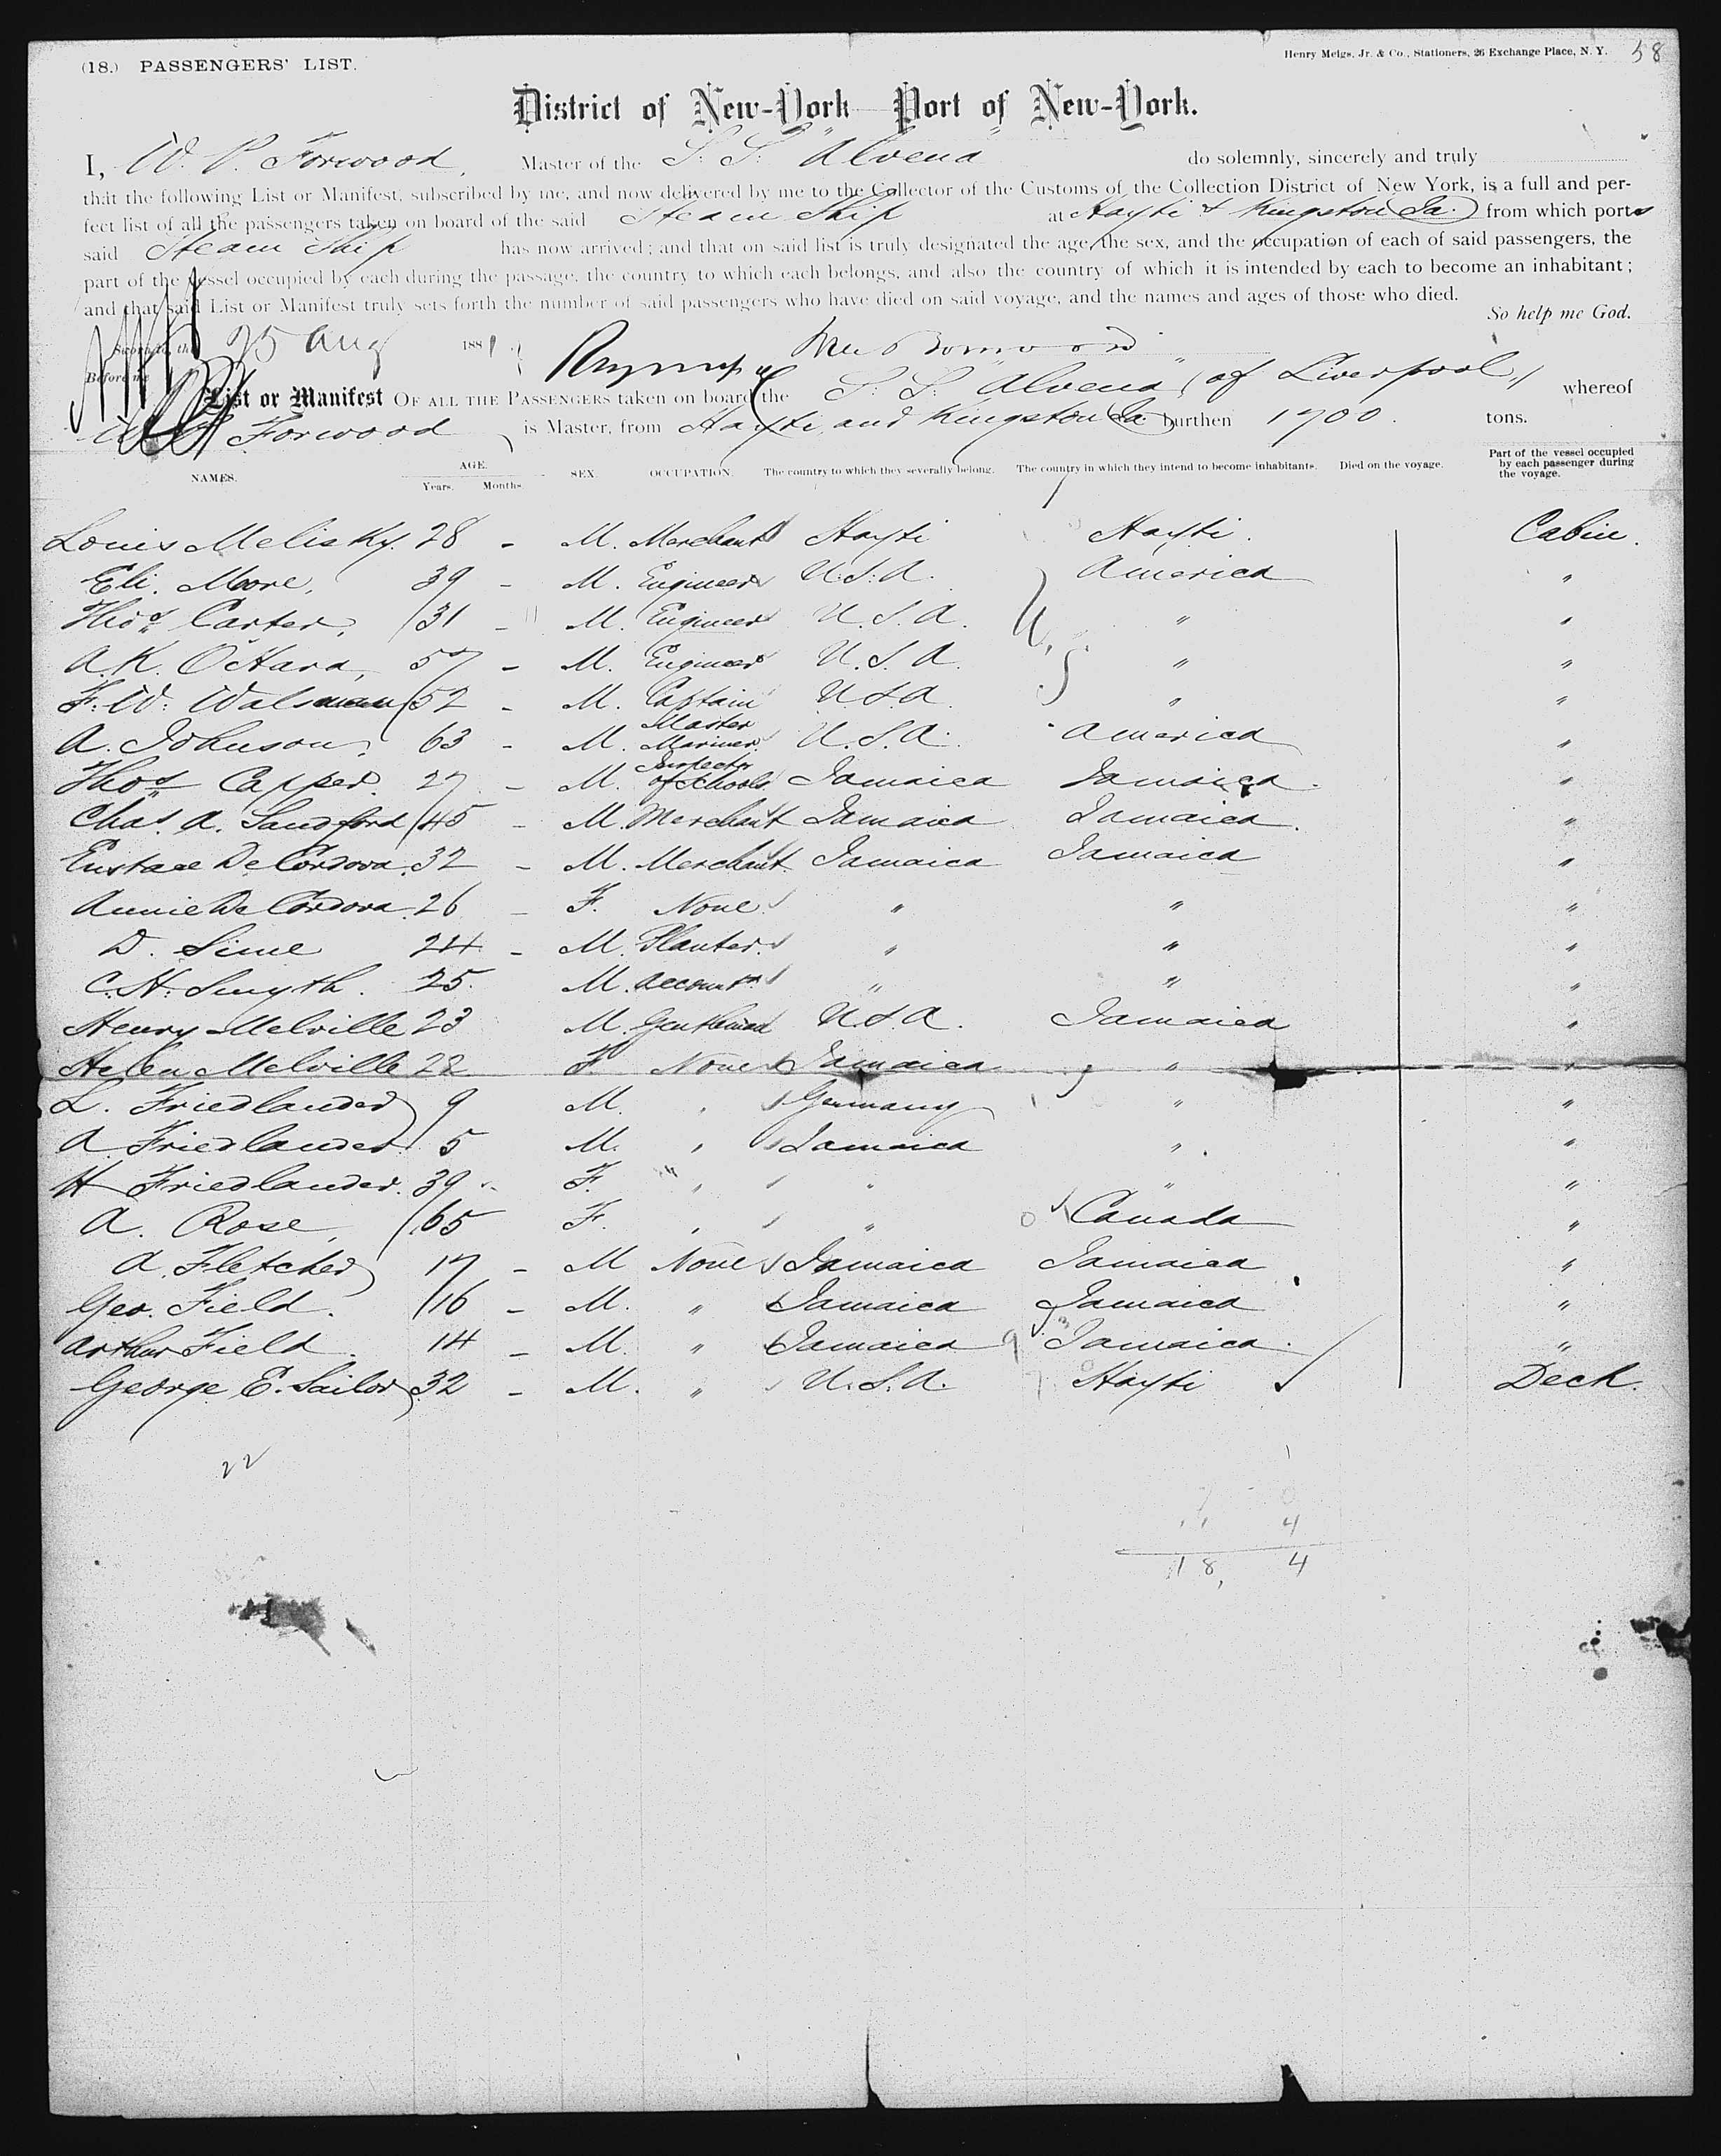 (18.) PASSENGERS' LIST.
Henry Meigs, Jr. & Co., Stationers, 26 Exchange Place, N. Y. 58
District of New-York Port of New-York.
I, W. P. Forwood, Master of the S. S. "Alvena" do solemnly, sincerely and truly
that the following List or Manifest, subscribed by me, and now delivered by me to the Collector of the Customs of the Collection District of New York, is a full and per-
fect list of all the passengers taken on board of the said Steam Ship at Hayti & Kingston Ja. from which ports
said Steam Ship has now arrived; and that on said list is truly designated the age, the sex, and the occupation of each of said passengers, the
part of the vessel occupied by each during the passage, the country to which each belongs, and also the country of which it is intended by each to become an inhabitant;
and that said List or Manifest truly sets forth the number of said passengers who have died on said voyage, and the names and ages of those who died.
So help me God.
Sworn to, the 25 Aug 1881
Before me
List or Manifest OF ALL THE PASSENGERS taken on board the S. S. "Alvena" (of Liverpool) whereof
W. P. Forwood is Master, from Hayti and Kingston Ja burthen 1700. tons.
NAMES. AGE. Years. Months. SEX. OCCUPATION. The country to which they severally belong. The country in which they intend to become inhabitants. Died on the voyage. Part of the vessel occupied by each passenger during the voyage.
Louis Melisky. 28 - M. Merchant Hayti Hayti. Cabin.
Eli. Moore, 39 - M. Engineer U.S.A. America "
Thos Carter, 31 - M. Engineer U.S.A. " "
A.K. O'Hara, 57 - M. Engineer U.S.A. " "
F. W. Walsman 52 - M. Captain USA " "
A. Johnson, 63 - M. Master Mariner. U.S.A. America "
Thos Capper. 27 - M. Inspector of Schools. Jamaica Jamaica. "
Chas. A. Sandford 45 - M. Merchant Jamaica Jamaica. "
Eustace De Cordova. 32 - M. Merchant. Jamaica Jamaica "
Annie De Cordova. 26 - F. None " " "
D. Sime 24 - M. Planter. " " "
C. H. Smyth. 25. M. Accountt. " " "
Henry Melville 23 M. Gentleman U.S.A. Jamaica "
Helen Melville 22 F. None Jamaica " "
L. Friedlander 9 M. " Germany " "
A Friedlander 5 M. " Jamaica " "
H Friedlander. 39 F. " " " "
A. Rose, 65 F. " " Canada "
A. Fletcher 17 - M None Jamaica Jamaica "
Geo. Field. 16 - M. " Jamaica Jamaica "
Arthur Field. 14 - M. " Jamaica Jamaica. "
George E. Sailor 32 - M. " U.S.A. Hayti Deck.
22
4
18, 4